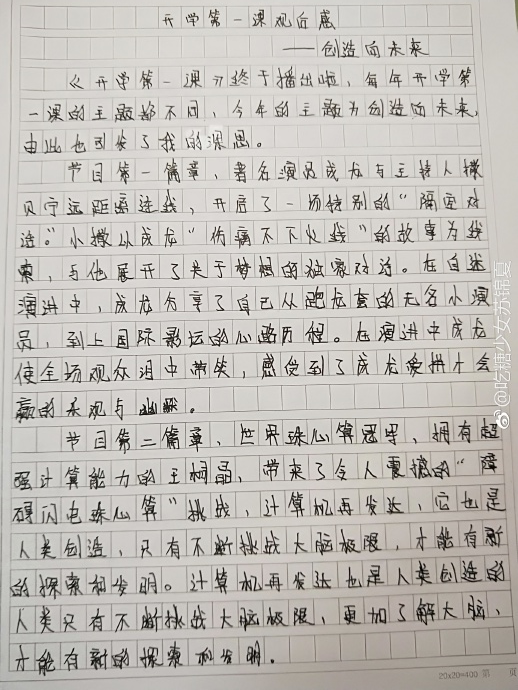 开学第一课观后感
——创造向未来
《开学第一课》终于播出啦,每年开学第
一课的主题都不同,今年的主题为创造向未来,
由此也引发了我的深思。
节目第一篇章,著名演员成龙与主持人撒
贝宁远距离连线,开启了一场特别的“隔空对
话。”小撒以成龙“伤痛不下火线”的故事为线
索,与他展开了关于梦想的独家对话。在自述
演讲中,成龙分享了自己从跑龙套的无名小演
员,到上国际影坛的心路历程。在演讲中成龙
使全场观众泪中带笑,感受到了成龙爱拼才会
赢的乐观与幽默。
节目第二篇章,世界珠心算冠军,拥有超
强计算能力的王桐晶,带来了令人震撼的“障
碍闪电珠心算”挑战,计算机再发达,它也是
人类创造,只有不断挑战大脑极限,才能有新
的探索和发明。计算机再发达也是人类创造的
人类只有不断挑战大脑极限,更加了解大脑,
才能有新的探索和发明。
20x20=400 第 页
@吃糖少女苏锦夏